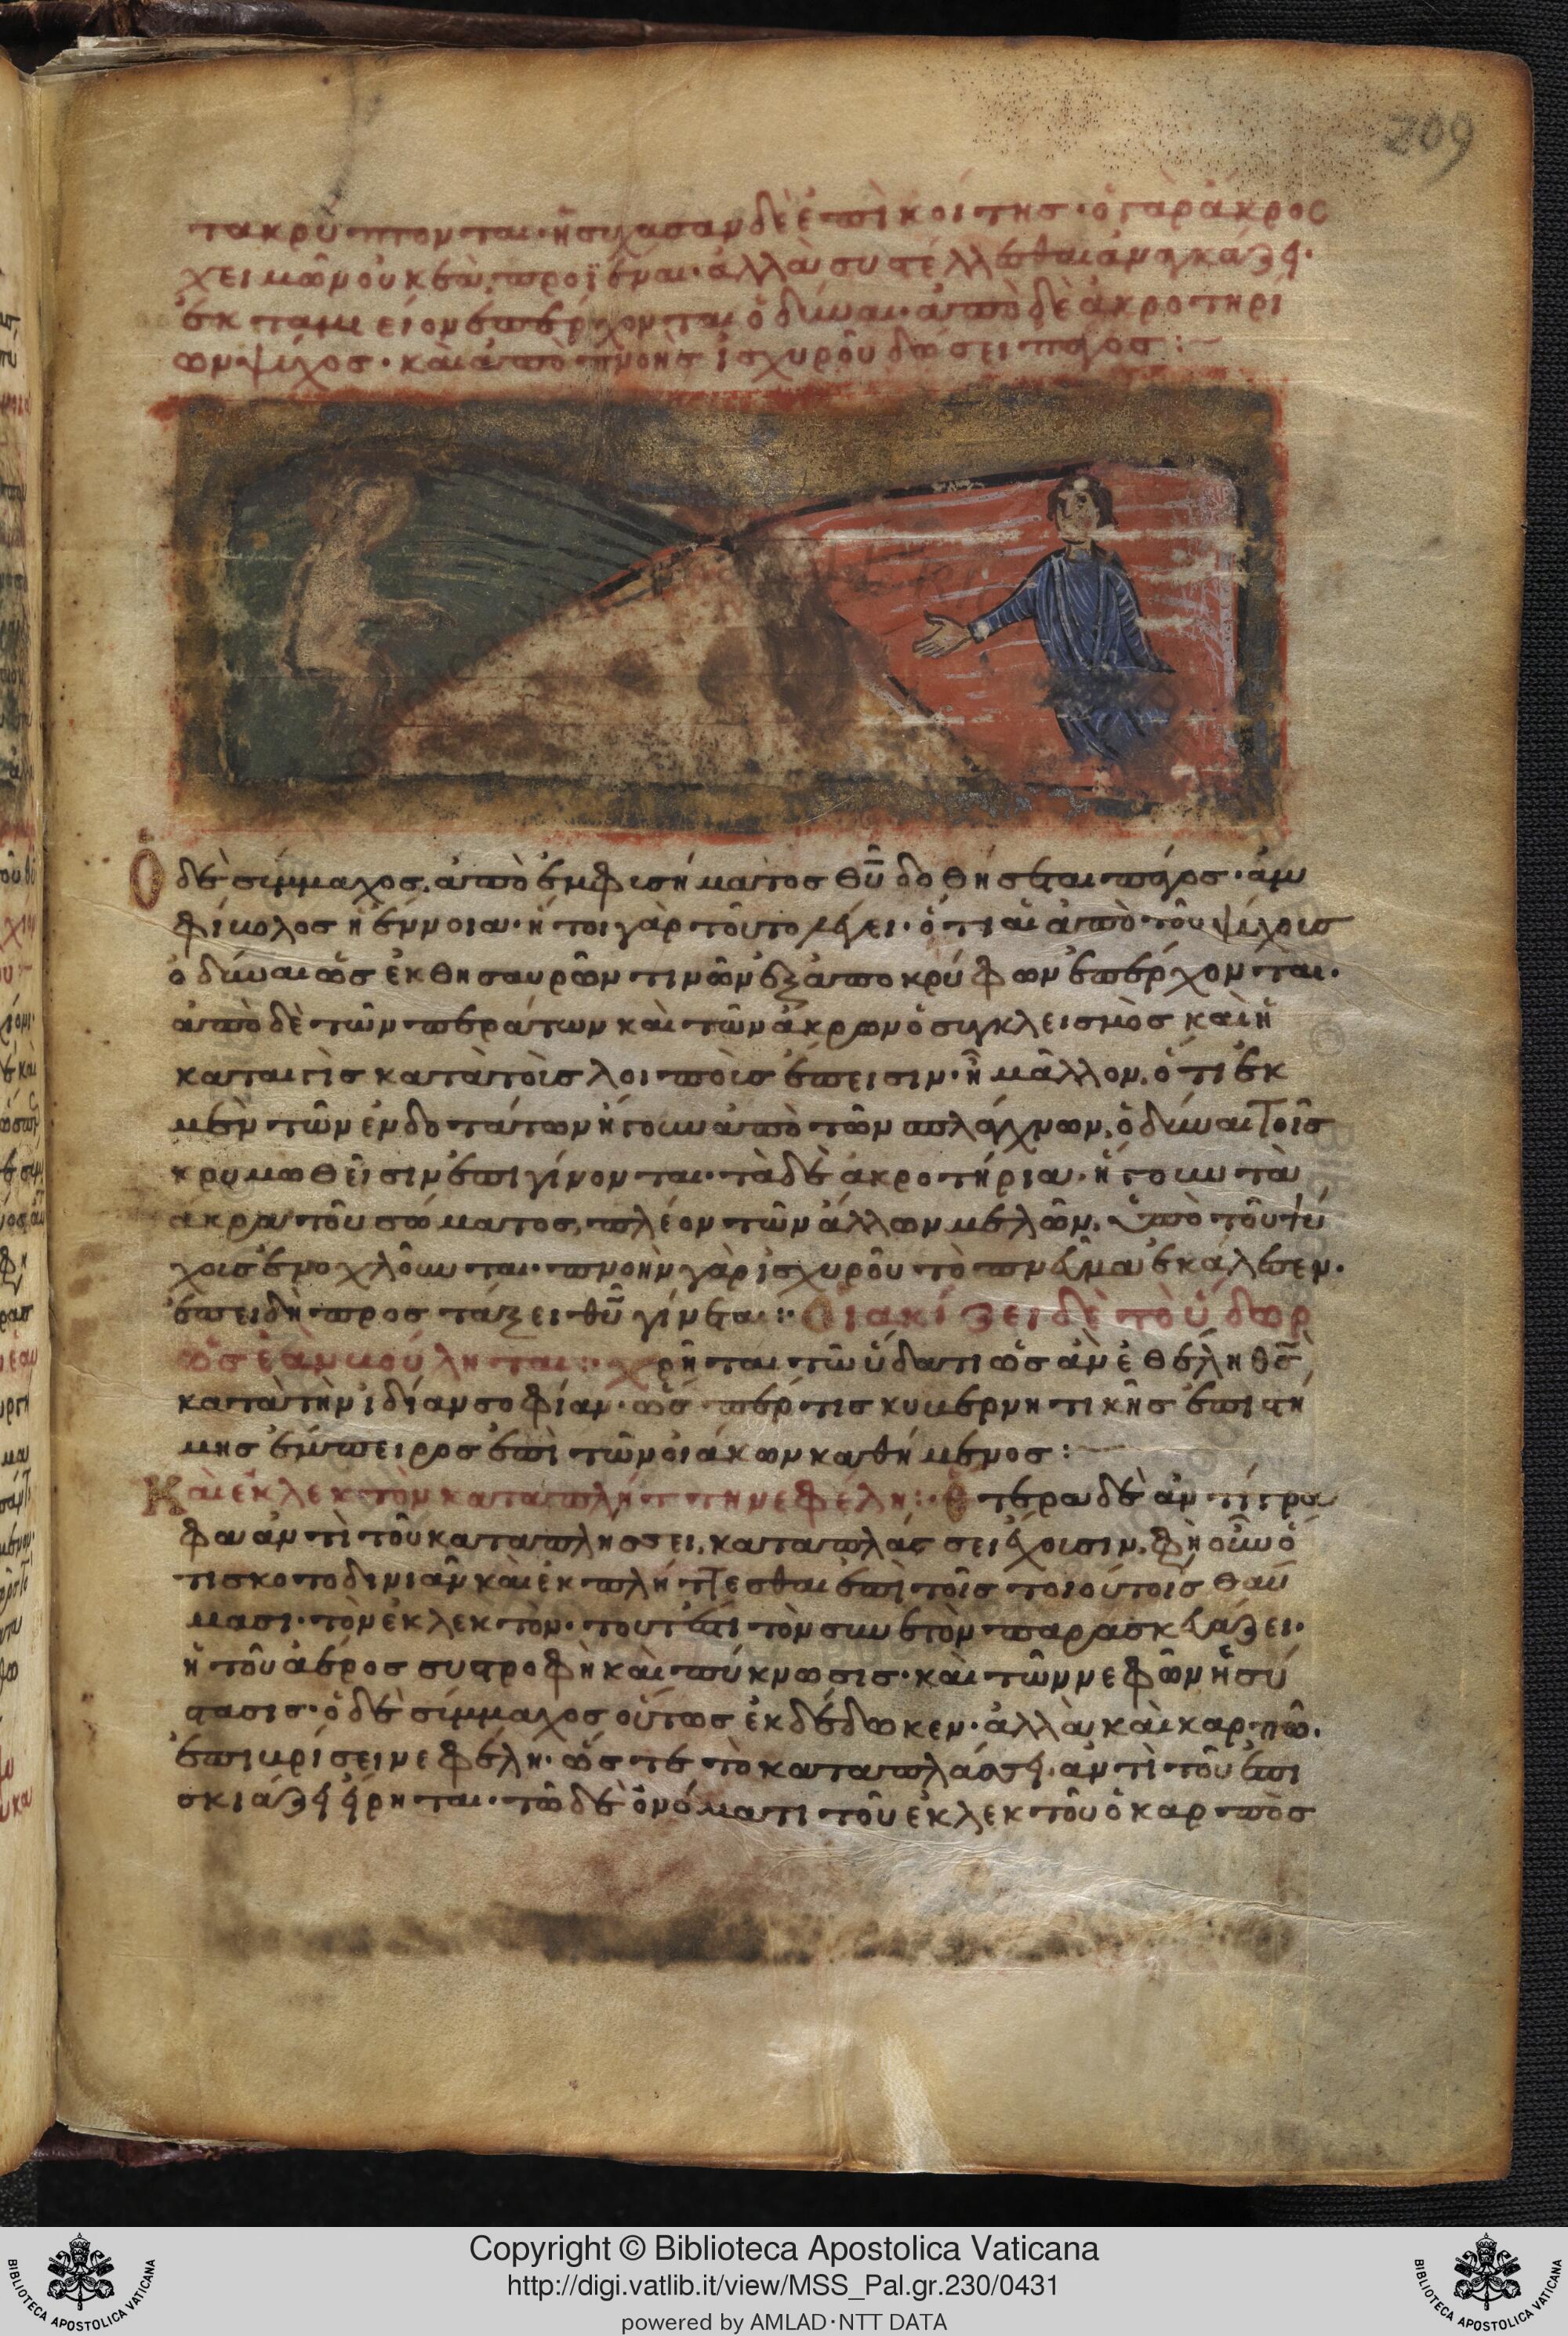 209
τακρύπτονται· ἡσύχασαν δὲ ἐπὶ κοίτης· ὁ γὰρ ἄκρος
χειμὼν οὐκ ἐᾷ προϊέναι· ἀλλὰ συστέλλεσθαι ἀναγκάζει·
ἐκ ταμείον ἐπέρχονται ὀδύναι· ἀπὸ δὲ ἀκροτηρί
ων ψύχος· καὶ ἀπὸ πνοῆς ἰσχυροῦ δώσει πάγος :~
Ὁ δὲ σύμμαχος, ἀπὸ ἐμφυσήματος θῦ δοθήσεται πάγος· ἀμ
φίβολος ἡ ἔννοια· ἤτοι γὰρ τοῦτο λέγει· ὅτι αἱ ἀπὸ τοῦ ψύχους
ὀδύναι ὡς ἐκ θησαυρῶν τινῶν ἐξ ἀποκρύφων ἐπέρχονται·
ἀπὸ δὲ τῶν περάτων καὶ τῶν ἄκρων ὁ συγκλεισμὸς καὶ ἡ
καταιγὶς κατὰ τοῖς λοιποῖς ἔπεισιν· ἢ μᾶλλον, ὅτι ἐκ
μὲν τῶν ἐνδοτάτων ἤγουν ἀπὸ τῶν σπλάγχνων, ὀδύναι τοῖς
κρυμωθεῖσιν ἐπιγίνονται· τὰ δὲ ἀκροτήρια· ἤγουν τὰ
ἄκρα τοῦ σώματος, πλέον τῶν ἄλλων μελῶν, ὑπὸ τοῦ ψύ
χους ἐνοχλοῦνται· πνοὴν γὰρ ἰσχυροῦ τὸ πνεῦμα ἐκάλεσεν·
ἐπειδὴ προστάξει θῦ γίνεται :· Οἰακίζει δὲ τὸ ὕδωρ
ὡς ἐὰν βούληται :· χρῆται τῶ ὕδατι ὡς ἂν ἐθέλῃ θς,
κατὰ τὴν ἰδίαν σοφίαν· ὥσπερ τις κυβερνητικῆς ἐπιστή
μης ἔμπειρος ἐπὶ τῶν οἰάκων καθήμενος :~
Καὶ ἐκλεκτὸν καταπλήττῃ νεφέλη :· Ἕτερα δὲ ἀντίγρα
φα ἀντὶ τοῦ καταπλήσσει, καταπλάσσει ἔχουσιν, φὴ οὖν ὅ
τι σκοτοδινιᾶν καὶ ἐκπλήττεσθαι ἐπὶ τοῖς τοιούτοις θαύ
μασι· τὸν ἐκλεκτὸν· τουτέστι τὸν συνετὸν παρασκευάζει·
ἡ τοῦ ἀέρος συστροφὴ καὶ πύκνωσις· καὶ τῶν νεφῶν ἡ σύ
στασις· ὁ δὲ σύμμαχος οὕτως ἐκδέδωκεν· ἀλλὰ καὶ καρπῶ·
ἐπιβρίσει νεφέλη· ὥστε τὸ καταπλάσσει, ἀντὶ τοῦ ἐπι
σκιάζει εἴρηται· τῶ δὲ ὀνόματι τοῦ ἐκλεκτοῦ ὁ καρπὸς
Copyright © Biblioteca Apostolica Vaticana
http://digi.vatlib.it/view/MSS_Pal.gr.230/0431
powered by AMLAD·NTT DATA
BIBLIOTECA APOSTOLICA VATICANA
BIBLIOTECA APOSTOLICA VATICANA